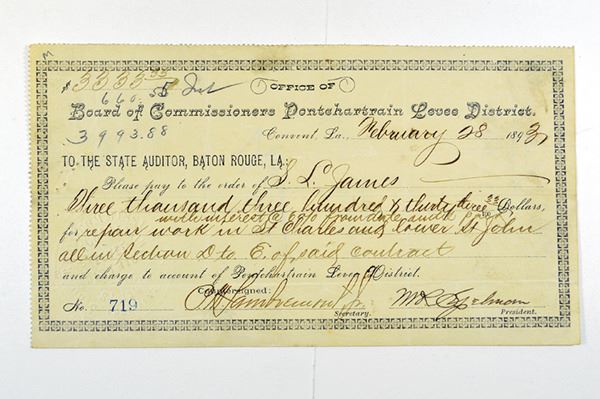 $3333.33
660.55 Int
3993.88
OFFICE OF
Board of Commissioners Pontchartrain Levee District.
Convent, La., February 28 1893
TO THE STATE AUDITOR, BATON ROUGE, LA:
Please pay to the order of S. L. James
Three thousand three hundred & thirty three 33/100 Dollars,
with interest @ 6% from date until paid
for repair work in St Charles and lower St John
all in Section D to E. of said contract
and charge to account of Pontchartrain Levee District.
Countersigned:
No. 719
Secretary.
President.